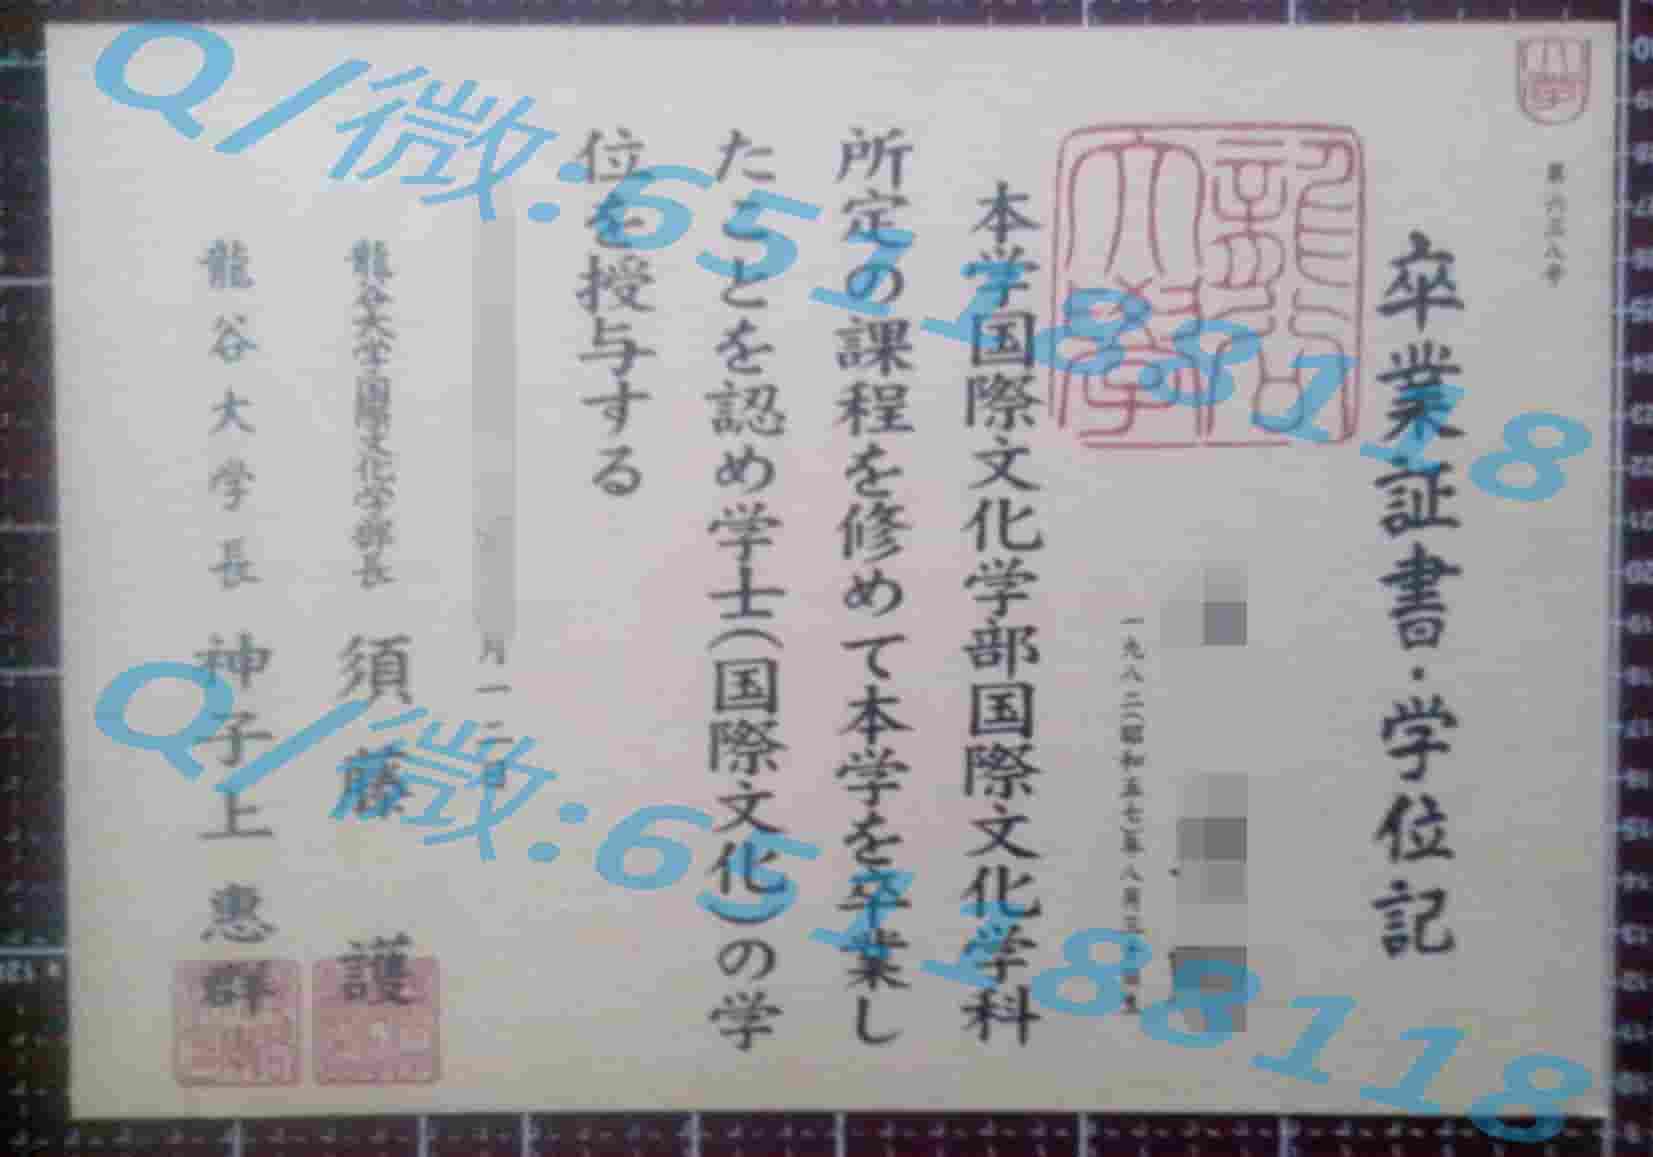 卒業証書・学位記
第六三八号
龍谷大學
一九八二(昭和五七)年八月三十日生
本学国際文化学部国際文化学科
所定の課程を修めて本学を卒業し
たことを認め学士(国際文化)の学
位を授与する
月一二日
龍谷大学国際文化学部長 須藤 護
龍谷大学長 神子上 恵群
Q/微:6511833118
Q/微:6511833118